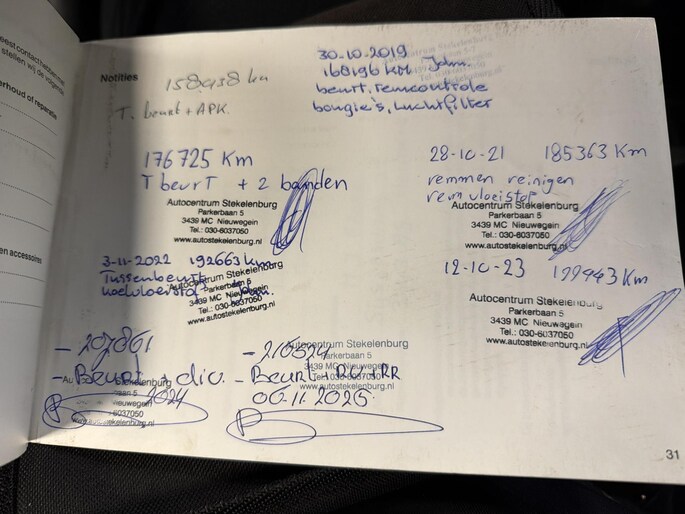 eest contact hebben met
stellen wij de volgende
erhoud of reparatie
en accessoires
Notities
158938 km
T. beurt + APK.
30-10-2019
Autocentrum Stekelenburg
168196 km John.
beurt, remcontrole
bougie's, Luchtfilter
176725 Km
T beurT + 2 banden
Autocentrum Stekelenburg
Parkerbaan 5
3439 MC Nieuwegein
Tel.: 030-6037050
www.autostekelenburg.nl
28-10-21 185363 Km
remmen reinigen
remvloeistof
Autocentrum Stekelenburg
Parkerbaan 5
3439 MC Nieuwegein
Tel.: 030-6037050
www.autostekelenburg.nl
3-11-2022 192663 km
Tussenbeurt
koelvloeistof
Autocentrum Stekelenburg
Parkerbaan 5
3439 MC Nieuwegein
Tel.: 030-6037050
www.autostekelenburg.nl
12-10-23 199943 Km
Autocentrum Stekelenburg
Parkerbaan 5
3439 MC Nieuwegein
Tel.: 030-6037050
www.autostekelenburg.nl
- 207861
- Beurt + div.
2024
- 210524
Autocentrum Stekelenburg
Parkerbaan 5
3439 MC Nieuwegein
- Beurt
Tel.: 030-6037050
www.autostekelenburg.nl
06.11.2025
31